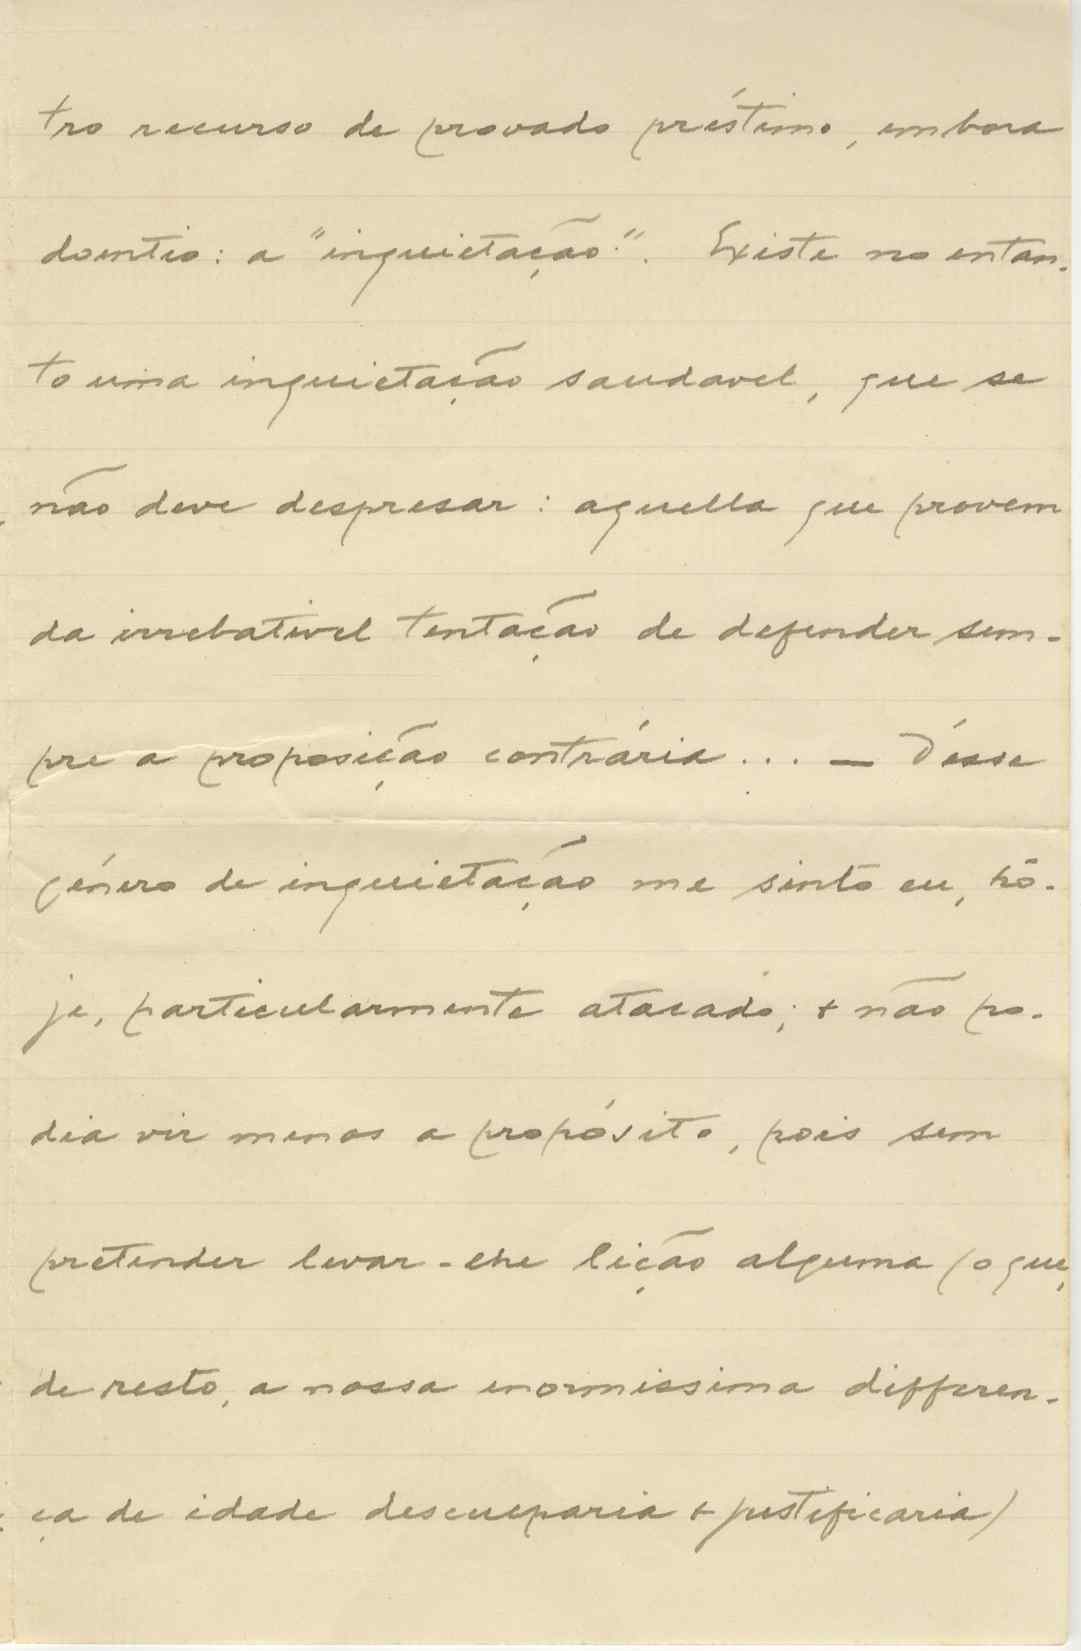 tro recurso de provado préstimo, embora
doentio: a "inquietação". Existe no entan-
to uma inquietação saudavel, que se
não deve despresar: aquella que provem
da irrebativel tentação de defender sem-
pre a proposição contrária... — Désse
género de inquietação me sinto eu, hô-
je, particularmente atacado; + não po-
dia vir menos a propósito, pois sem
pretender levar-lhe lição alguma (o que,
de resto, a nossa enormissima differen-
ça de idade desculparia + justificaria)